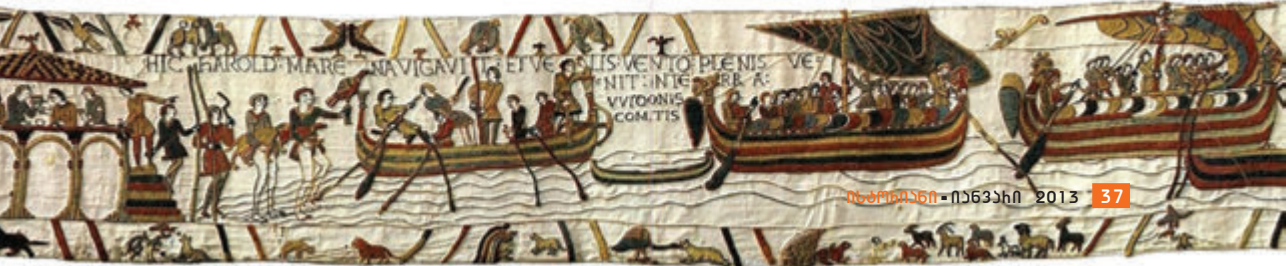 HIC HAROLD: MARE NAVIGAVIT: ET VELIS: VENTO: PLENIS VE=
NIT: INTERRA:
VVIDONIS
COMITIS
ისტორიანი - იანვარი 2013 37